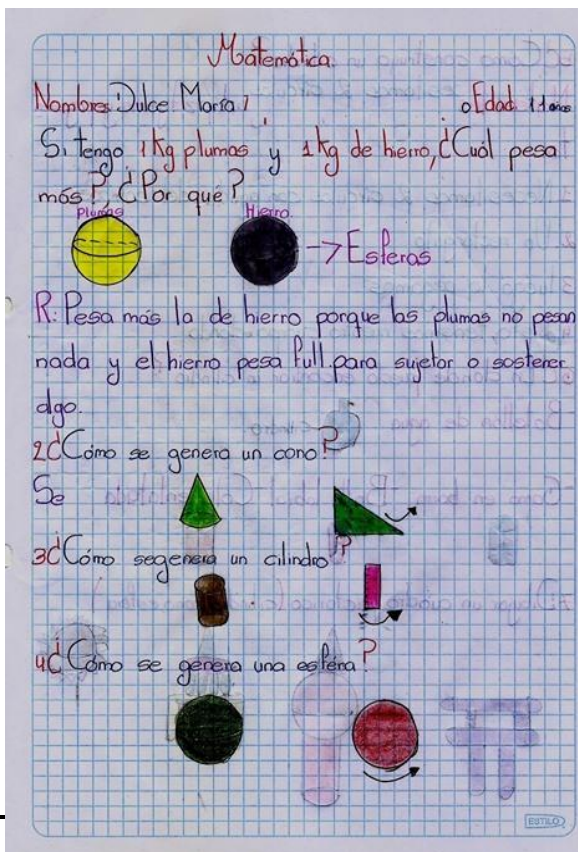 Matemática.
Nombres: Dulce María 1 o Edad 11 años
Si tengo 1 Kg plumas y 1 kg de hierro, ¿Cuál pesa
más?, ¿Por qué?
Plumas Hierro.
→ Esferas
R: Pesa más la de hierro porque las plumas no pesan
nada y el hierro pesa full para sujetar o sostener
algo.
2¿Cómo se genera un cono?
Se
3¿Cómo segenera un cilindro?
4¿Cómo se genera una esfera?
ESTILO